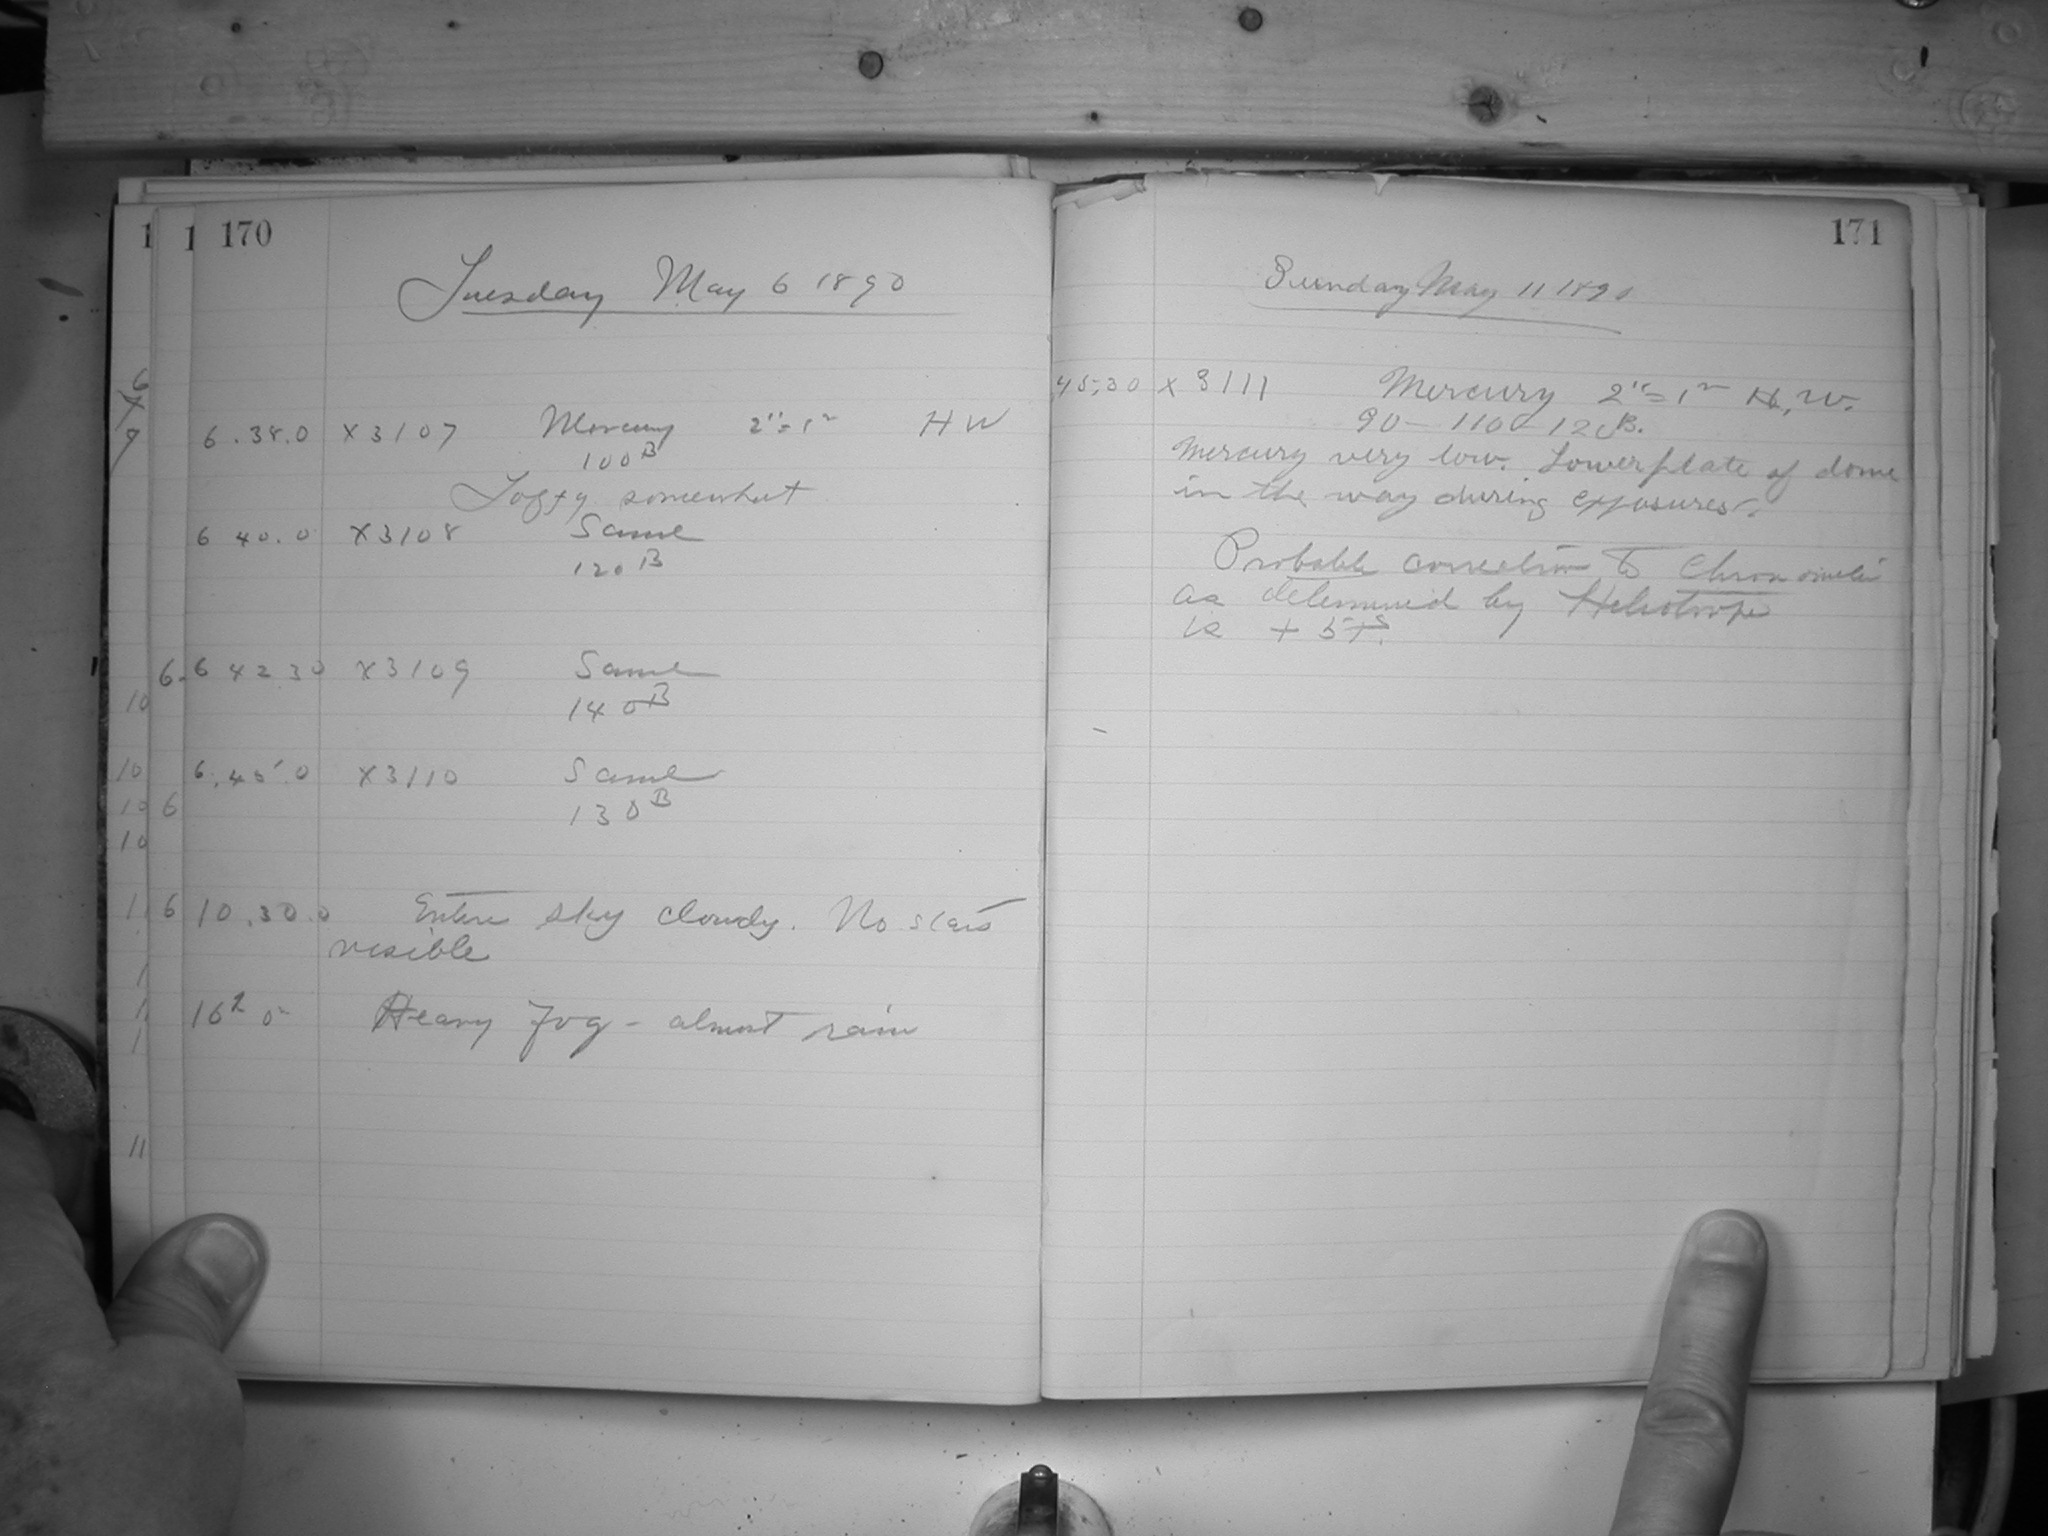 170
Tuesday May 6 1890
6.38.0 X3107 Mercury 2"=1m H W
100B
Foggy somewhat
6 40.0 X3108 Same
120B
6 42 30 X3109 Same
140B
6.45.0 X3110 Same
130B
10.30.0 Entire sky cloudy. No stars
visible
16h 0m Heavy Fog - almost rain
171
Sunday May 11 1890
45.30 X3111 Mercury 2"=1m H.W.
90 - 110 - 120B.
Mercury very low. Lower plate of dome
in the way during exposures.
Probable correction to Chronometer
as determined by Heliotrope
is